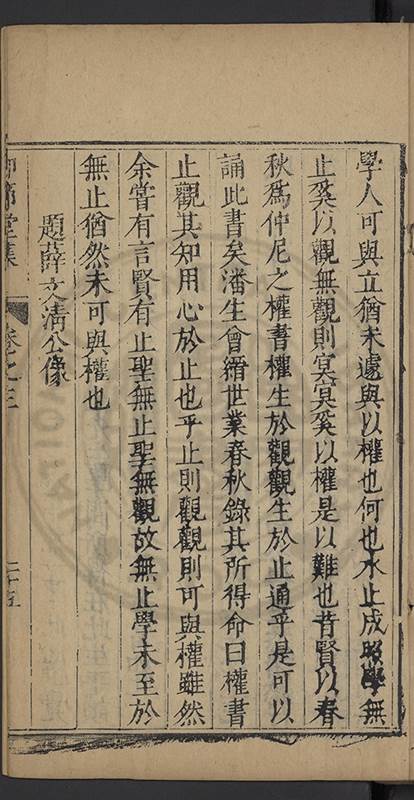 學人可與立猶未遽與以權也何也水止成照學無
止奚以觀無觀則冥冥奚以權是以難也昔賢以春
秋為仲尼之權書權生於觀觀生於止通乎是可以
誦此書矣潘生曾縉世業春秋錄其所得命曰權書
止觀其知用心於止也乎止則觀觀則可與權雖然
余嘗有言賢有止聖無止聖無觀故無止學未至於
無止猶然未可與權也
題薛文清公像
堂集
卷之三
二十五